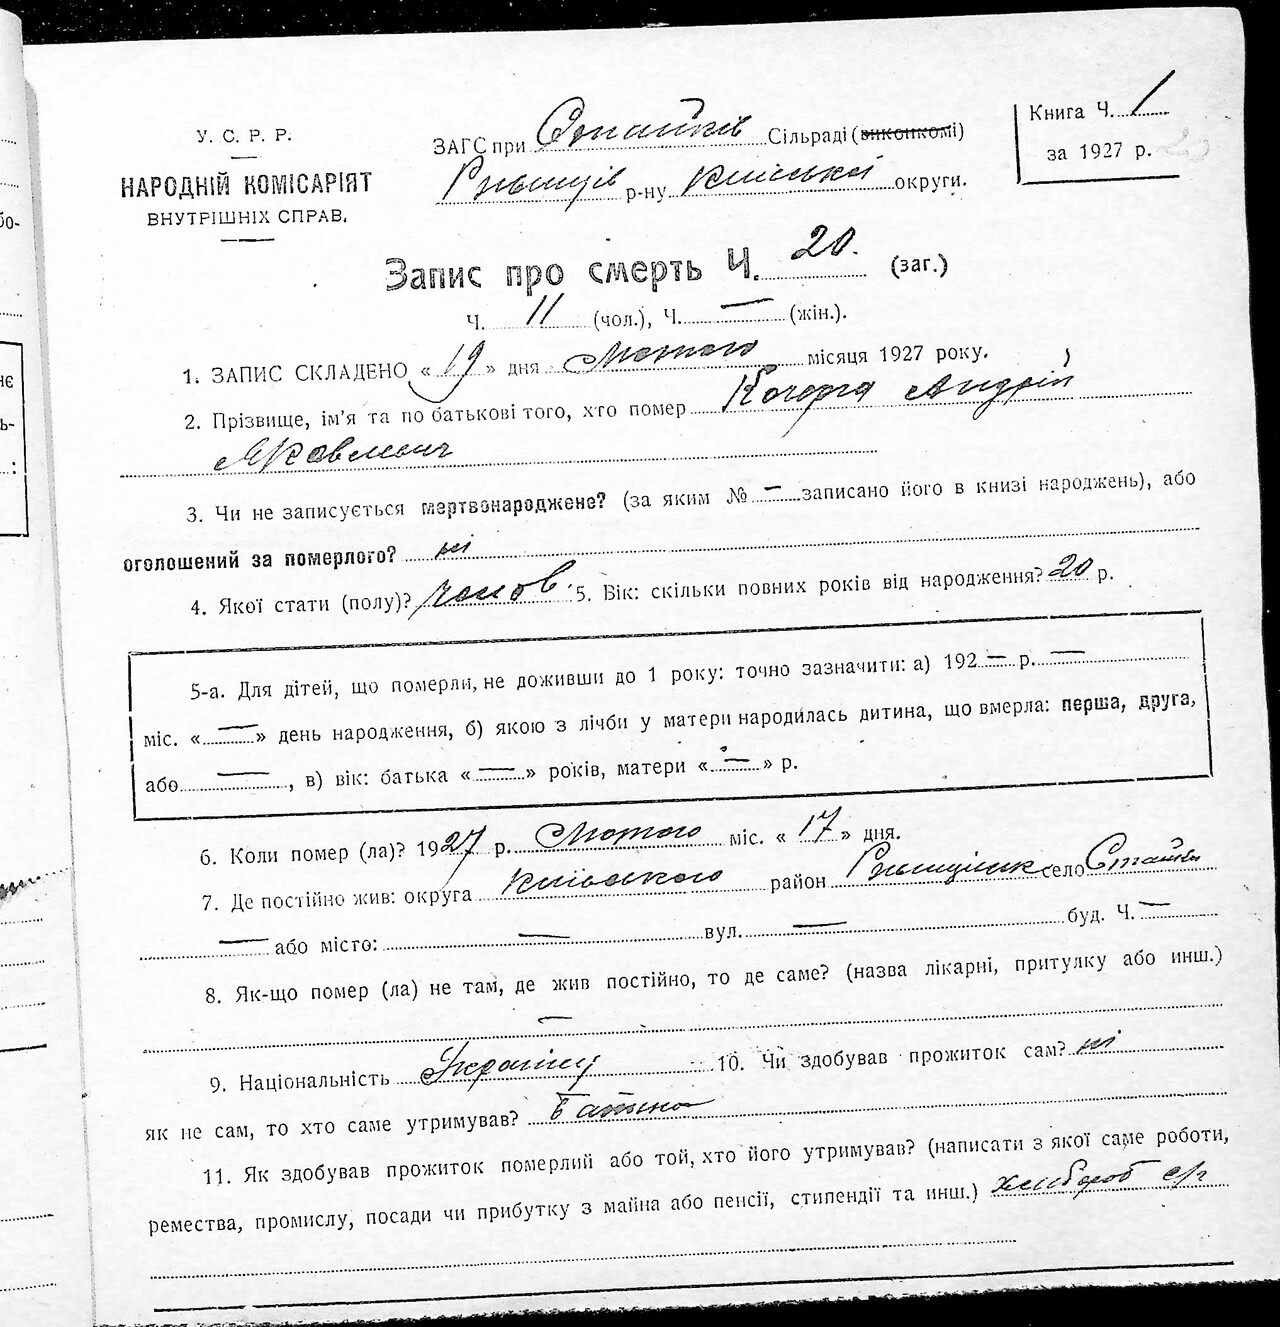 У. С. Р. Р.
НАРОДНІЙ КОМІСАРІЯТ
ВНУТРІШНІХ СПРАВ.
ЗАГС при Стайків Сільраді (виконкомі)
р-ну Київської округи.
Книга Ч. 1
за 1927 р.
Запис про смерть Ч. 20. (заг.)
Ч. 11 (чол.), Ч. — (жін.).
1. ЗАПИС СКЛАДЕНО « 19 » дня Лютого місяця 1927 року.
2. Прізвище, ім'я та по батькові того, хто помер Кочерга Андрій
Яковлевич
3. Чи не записується мертвонароджене? (за яким № — записано його в книзі народжень), або
оголошений за померлого? ні
4. Якої стати (полу)? чолов. 5. Вік: скільки повних років від народження? 20 р.
5-а. Для дітей, що померли, не доживши до 1 року: точно зазначити: а) 192 — р. —
міс. « — » день народження, б) якою з лічби у матери народилась дитина, що вмерла: перша, друга,
або — , в) вік: батька « — » років, матери « — » р.
6. Коли помер (ла)? 1927 р. Лютого міс. « 17 » дня.
7. Де постійно жив: округа Київського район село Стайки
— або місто: — вул. — буд. Ч. —
8. Як-що помер (ла) не там, де жив постійно, то де саме? (назва лікарні, притулку або инш.)
—
9. Національність Українц 10. Чи здобував прожиток сам? ні
як не сам, то хто саме утримував? Батько
11. Як здобував прожиток померлий або той, хто його утримував? (написати з якої саме роботи,
ремества, промислу, посади чи прибутку з майна або пенсії, стипендії та инш.) хлібороб с/г